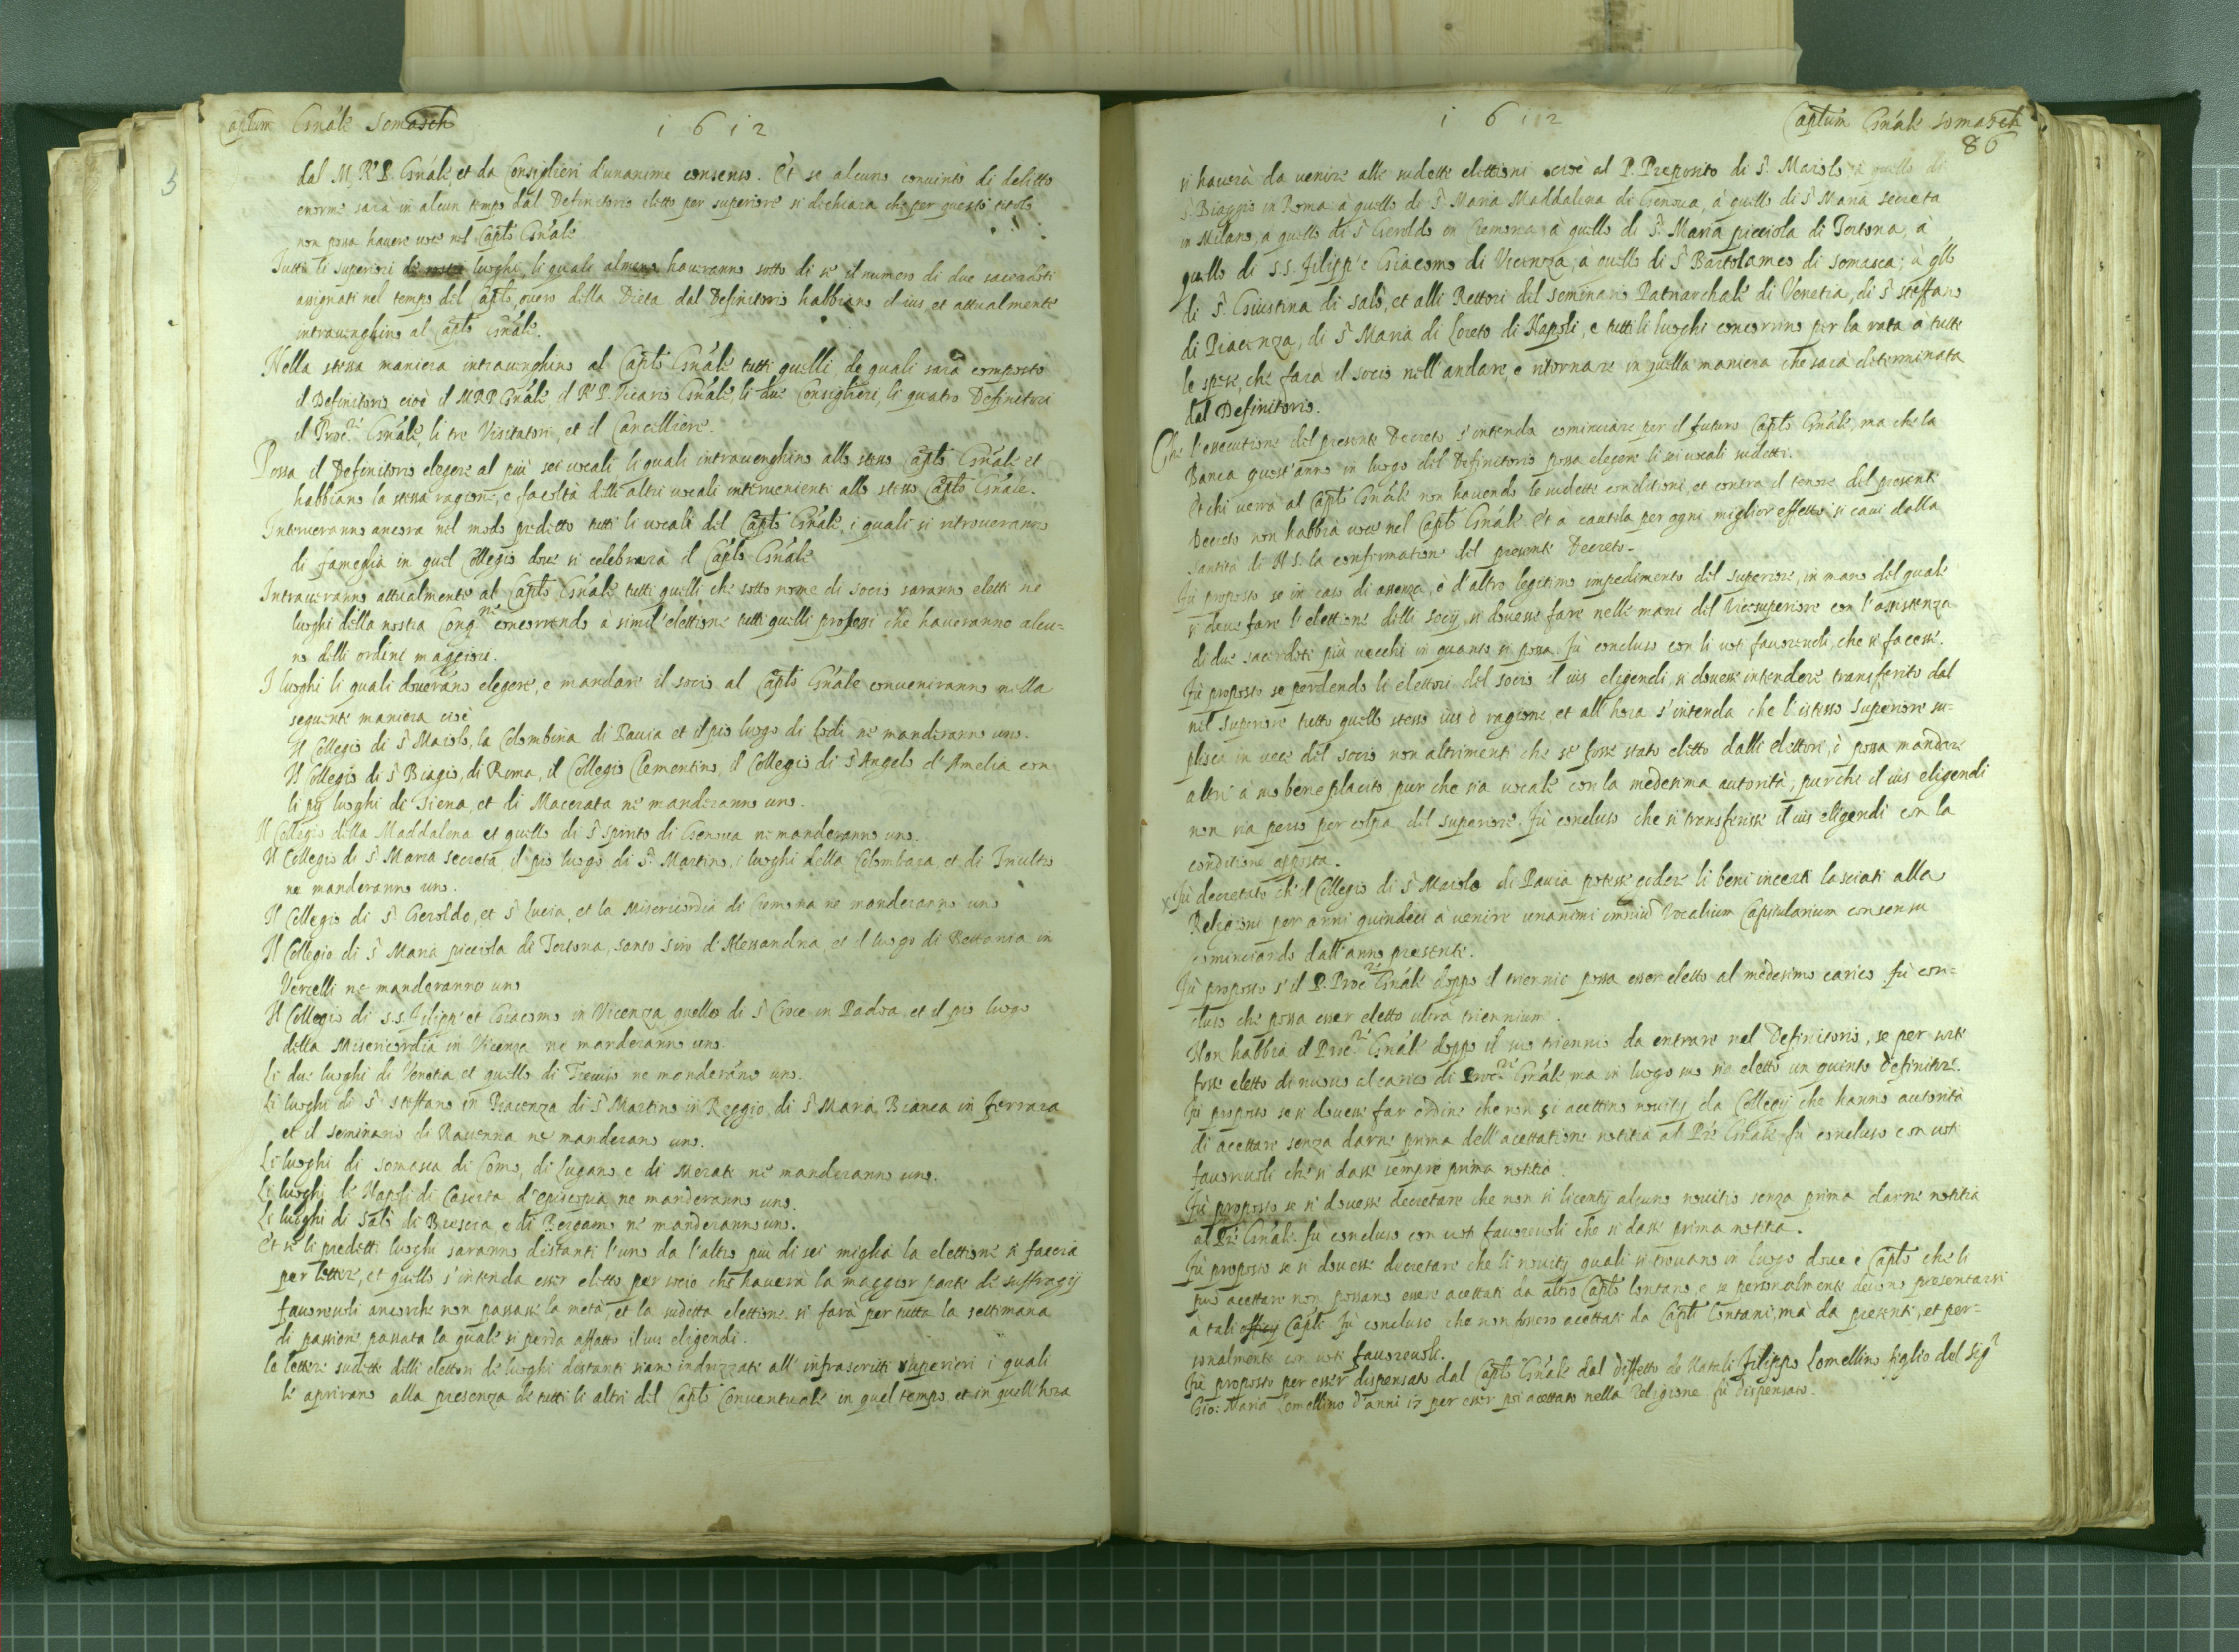 Captum Gnále Somasch
1612
dal M. R. P. Gnále, et da Consiglieri d'unanime consenso. Et se alcuno convinto di delitto
enorme sarà in alcun tempo dal Definitorio eletto per superiore si dichiara che per questo titolo
non possa havere voce nel Caplo Gnále.
Tutti li superiori de nostri luoghi, li quali almeno haveranno sotto di se il numero di due sacerdoti
assignati nel tempo del Caplo, overo della Dieta dal Definitorio habbiano il ius, et attualmente
intravenghino al Caplo Gnále.
Nella stessa maniera intravenghino al Caplo Gnále tutti quelli, de quali sarà composto
il Definitorio cioè il M.R.P. Gnále, il R. P. Vicario Gnále, li due Consiglieri, li quatro Definitori
il Procre Gnále, li tre Visitatori, et il Cancelliere.
Possa il Definitorio elegere al più sei vocali li quali intravenghino allo stesso Caplo Gnále et
habbiano la stessa ragione, e facoltà delli altri vocali intervenienti allo stesso Caplo Gnále.
Interveranno ancora nel modo predetto tutti li vocali del Caplo Gnále, i quali si ritroveranno
di fameglia in quel Collegio dove si celebrarà il Caplo Gnále
Intraveranno attualmente al Caplo Gnále tutti quelli che sotto nome di socio saranno eletti ne
luoghi della nostra Cong.ne concorrendo à simil' elettione tutti quelli professi che haveranno alcu=
no delli ordini maggiori.
I luoghi li quali doverano elegere, e mandare il socio al Caplo Gnále conveniranno nella
seguente maniera cioè
Il Collegio di S. Maiolo, la Colombina di Pavia et il pio luogo di Lodi ne manderanno uno.
Il Collegio di S. Biagio, di Roma, il Collegio Clementino, il Collegio di S. Angelo d'Amelia con
li pij luoghi di Siena, et di Macerata ne manderanno uno.
Il Collegio della Maddalena et quello di S. Spirito di Genova ne manderanno uno.
Il Collegio di S. Maria secreta, il pio luogo di S. Martino, i luoghi della Colombara, et di
ne manderanno uno.
Il Collegio di S. Geroldo, et S. Lucia, et la Misericordia di Cremona ne manderanno uno
Il Collegio di S. Maria picciola di Tortona, santo Siro di Alessandria, et il luogo di in
Vercelli ne manderanno uno
Il Collegio di S.S. Filippo et Giacomo in Vicenza quello di S. Croce in Padoa, et il pio luogo
della Misericordia in Vicenza ne manderanno uno.
Li due luoghi di Venetia et quello di Treviso ne manderano uno.
Li luoghi di S. Steffano in Piacenza di S. Martino in Reggio, di S. Maria Bianca in Ferrara
et il seminario di Ravenna ne manderano uno.
Li luoghi di Somasca di Como, di Lugano e di Merate ne manderanno uno.
Li luoghi di Napoli di Caserta d'episcopia ne manderanno uno.
Li luoghi di Salò di Brescia e di Bergamo ne manderanno uno.
Et se li predetti luoghi saranno distanti l'uno da l'altro più di sei miglia la elettione si faccia
per lettere, et quello s'intenda esser eletto per socio che haverà la maggior parte de suffragij
favorevoli ancorche non passasse la metà, et la sudetta elettione si farà per tutta la settimana
di passione passata la quale si perda affatto il ius eligendi.
Le lettere sudette delli elettori de luoghi distanti siano indrizzate all' infrascritti superiori i quali
le aprirano alla presenza de tutti li altri del Caplo Conventuale in quel tempo, et in quell'hora
1612
Captum Gnále Somasch
86
si haverà da venire alle sudette elettioni cioè al P. Preposito di S. Maiolo, à quello di
S. Biaggio in Roma, à quello di S. Maria Maddalena di Genova, à quello di S. Maria secreta
in Milano, a quello di S. Geroldo in Cremona, à quello di S. Maria picciola di Tortona, à
quello di S.S. Filippo e Giacomo di Vicenza, à quello di S. Bartolameo di Somasca; à qllo
di S. Giustina di Salò, et alli Rettori del seminario Patriarchale di Venetia, di S. Steffano
di Piacenza, di S. Maria di Loreto di Napoli, e tutti li luoghi concorrino per la rata à tutte
le spese, che farà il socio nell'andare, e ritornare in quella maniera che sarà determinata
dal Definitorio.
Che l'essecutione del presente Decreto s'intenda cominciare per il futuro Caplo Gnále, ma che la
Banca quest'anno in luogo del Definitorio possa elegere li sei vocali sudetti.
Et chi verrà al Caplo Gnále non havendo le sudette conditioni, et contra il tenore del presente
Decreto non habbia voce nel Caplo Gnále. Et à cautela per ogni miglior effetto si cavi dalla
Santità di N. S. la confirmatione del presente Decreto.
Fù proposto se in caso di assenza, ò d'altro legitimo impedimento del superiore, in mano del quale
si deve fare l'elettione delli socij, si dovesse fare nelle mani del Vicesuperiore con l'assistenza
di due sacerdoti più vecchi in quanto si possa. Fù concluso con li voti favorevoli, che si facesse.
Fù proposto se perdendo li elettori del socio il ius eligendi, si dovesse intendere transferito dal
nel superiore tutto quello stesso ius ò ragione, et all'hora s'intenda che l'istesso superiore su=
plisca in vece del socio non altrimenti che se fosse stato eletto dalli elettori, ò possa mandare
altri à suo beneplacito, pur che sia vocale con la medesima autorità, purche il ius eligendi
non sia perso per colpa del superiore. Fù concluso che si transferisse il ius eligendi con la
conditione apposta.
Fù decretato ch' il Collegio di S. Maiolo di Pavia potesse godere li beni incerti lasciati alla
Religione per anni quindeci à venire unanimi omnium Vocalium Capitularium consensu
cominciando dall'anno presente.
Fù proposto s'il P. Procre Gnále doppo il triennio possa esser eletto al medesimo carico fù con=
cluso che possa esser eletto ultra triennium.
Non habbia il Procre Gnále doppo il suo triennio da entrare nel Definitorio, se per sorte
fosse eletto di nuovo al carico di Procre Gnále ma in luogo suo sia eletto un quinto definitore.
Fù proposto se si dovesse far ordine che non si acettino novitij da Collegij che hanno autorità
di acettare senza darne prima dell'acettatione notitia al Pre Gnále fù concluso con voti
favorevoli che si dasse sempre prima notitia.
Fù proposto se si dovesse decretare che non si licentij alcuno novitio senza prima darne notitia
al Pre Gnále. fù concluso con voti favorevoli che si dasse prima notitia.
Fù proposto se si dovesse decretare che li novitij quali si trovano in luogo dove è Caplo che li
può acettare non possano essere acettati da altro Caplo lontano, e se personalmente devono presentarsi
à tali Capli. fù concluso che non fossero acettati da Capli lontani, mà da presenti, et per=
sonalmente con voti favorevoli.
Fù proposto per esser dispensato dal Caplo Gnále dal diffetto de Natali Filippo Lomellino figlio del Sigr
Gio: Maria Lomellino d'anni 17 per esser poi acettato nella Religione fù dispensato.